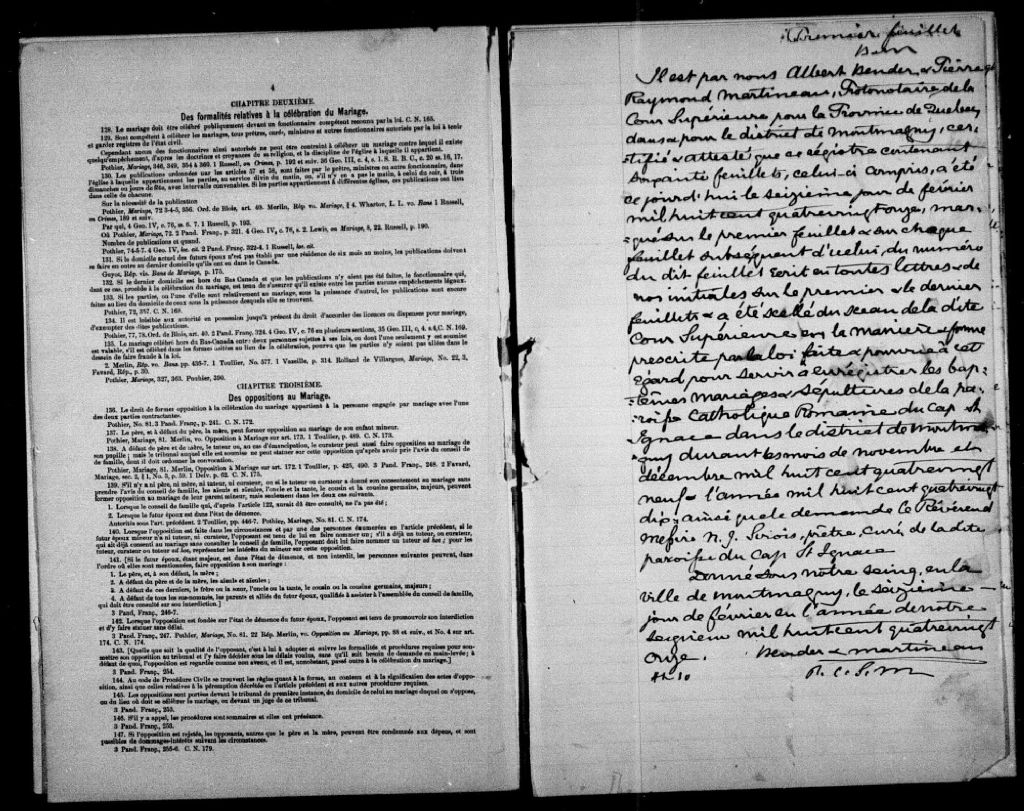 4
CHAPITRE DEUXIÈME.
Des formalités relatives à la célébration du Mariage.
128. Le mariage doit être célébré publiquement devant un fonctionnaire compétent reconnu par la loi. C. N. 165.
129. Sont compétents à célébrer les mariages, tous prêtres, curés, ministres et autres fonctionnaires autorisés par la loi à tenir
et garder registres de l'état civil.
Cependant aucun des fonctionnaires ainsi autorisés ne peut être contraint à célébrer un mariage contre lequel il existe
quelqu'empêchement, d'après les doctrines et croyances de sa religion, et la discipline de l'église à laquelle il appartient.
Pothier, Mariage, 346, 349, 354 à 360. 1 Russell, on Crimes, p. 192 et suiv. 36 Geo. III, c. 4, s. 1. S. R. B. C., c. 20 ss. 16, 17.
130. Les publications ordonnées par les articles 57 et 58, sont faites par le prêtre, ministre ou autre fonctionnaire, dans
l'église à laquelle appartiennent les parties, au service divin du matin, ou, s'il n'y en a pas le matin, à celui du soir, à trois
dimanches ou jours de fête, avec intervalle convenables. Si les parties appartiennent à différentes églises, ces publications ont lieu
dans celle de chacune.
Sur la nécessité de la publication
Pothier, Mariage, 72 3-4-5, 356. Ord. de Blois, art. 40. Merlin, Rép vo. Mariage, § 4. Wharton, L. L. vo. Bans 1 Russell,
on Crimes, 189 et suiv.
Par qui, 4 Geo. IV, c. 76, ss. 6. 7. 1 Russell, p. 193.
Où Pothier, Mariage, 72. 2 Pand. Franç., p. 321. 4 Geo. IV, c. 76, s. 2. Lewis, on Mariage, 8, 22. Russell, p. 190.
Nombre de publications et quand.
Pothier, 74-5-7. 4 Geo. IV, loc. cit. 2 Pand. Franç. 322-4. 1 Russell, loc. cit.
131. Si le domicile actuel des futurs époux n'est pas établi par une résidence de six mois au moins, les publications doivent
se faire en outre au dernier domicile qu'ils ont eu dans le Canada.
Guyot, Rép. vis. Bans de Mariage, p. 175.
132. Si le dernier domicile est hors du Bas-Canada et que les publications n'y aient pas été faites, le fonctionnaire qui,
dans ce cas, procède à la célébration du mariage, est tenu de s'assurer qu'il existe entre les parties aucuns empêchements légaux.
133. Si les parties, ou l'une d'elle sont relativement au mariage, sous la puissance d'autrui, les publications sont encore
faites au lieu du domicile de ceux sous la puissance desquels elle se trouvent.
Pothier, 72, 357. C. N. 168.
134. Il est loisible aux autorité en possession jusqu'à présent du droit d'accorder des licences ou dispenses pour mariage,
d'exempter des dites publications.
Pothier, 77, 78. Ord. de Blois, art. 40. 2 Pand Franç. 324. 4 Geo. IV, c. 76 en plusieurs sections, 35 Geo. III, c. 4, s 4, C. N. 169.
135. Le mariage célébré hors du Bas-Canada entre deux personnes sujettes à ses lois, ou dont l'une seulement y est soumise
est valable, s'il est célébré dans les formes usitées au lieu de la célébration, pourvu que les parties n'y soient pas allées dans le
dessein de faire fraude à la loi.
2. Merlin, Rép. vo. Bans pp. 435-7. 1 Toullier, No. 577. 1 Vazeille, p. 314. Rolland de Villargues, Mariage, No. 22, 3,
Favard, Rép., p. 30.
Pothier, Mariage, 327, 363. Pouhier, 390.
CHAPITRE TROISIÈME.
Des oppositions au Mariage.
136. Le droit de former opposition à la célébration du mariage appartient à la personne engagée par mariage avec l'une
des deux parties contractantes.
Pothier, No. 81. 3 Pand. Franç., p. 241. C. N. 172.
137. Le père, et à défaut du père, la mère, peut former opposition au mariage de son enfant mineur.
Pothier, Mariage, 81. Merlin, vo. Opposition à Mariage sur art. 173, 1 Toullier, p. 489. C. N. 173.
138. A défaut de père et de mère, le tuteur, ou, au cas d'émancipation, le curateur peut aussi faire opposition au mariage de
son pupille ; mais le tribunal auquel elle est soumise ne peut statuer sur cette opposition qu'après avoir pris l'avis du conseil de
famille, dont il doit ordonner la convocation.
Pothier, Mariage, 81. Merlin, Opposition à Mariage sur art. 172. 1 Toullier, p. 425, 490. 3 Pand. Franç., 248. 2 Favard,
Mariage, sec. 2, § 1, No. 3, p. 59. 1 Delv. p. 62. C. N. 175.
139. S'il n'y a ni père, ni mère, ni tuteur, ni curateur, ou si le tuteur ou curateur a donné son consentement au mariage sans
prendre l'avis du conseil de famille, les aïeuls et aïeules, l'oncle et la tante, le cousin et la cousine germains, majeurs, peuvent
former opposition au mariage de leur parent mineur, mais seulement dans les deux cas suivants.
1. Lorsque le conseil de famille qui, d'après l'article 122, aurait dû être consulté, ne l'a pas été ;
2. Lorsque le futur époux est dans l'état de démence.
Autorités sous l'art. précédent. 2 Toullier, pp. 446-7. Pothier, Mariage, No. 81. C. N. 174.
140. Lorsque l'opposition est faite dans les circonstances et par une des personnes énumérées en l'article précédent, si le
futur époux mineur n'a ni tuteur, ni curateur, l'opposant est tenu de lui en faire nommer un ; s'il a déjà un tuteur, ou curateur,
qui ait déjà consenti au mariage sans consulter le conseil de famille, l'opposant doit lui faire nommer un tuteur ad hoc ; pour les
tuteur, curateur ou tuteur ad hoc, représenter les intérêts du mineur sur cette opposition.
141. [Si le futur époux, étant majeur, est dans l'état de démence, et non interdit, les personnes suivantes peuvent, dans
l'ordre où elles sont mentionnées, faire opposition à son mariage :
1. Le père, et, à son défaut, la mère ;
2. A défaut du père et de la mère, les aïeuls et aïeules ;
3. A défaut de ces derniers, le frère ou la sœur, l'oncle ou la tante, le cousin ou la cousine germains, majeurs ;
4. A défaut de tous les sus-nommés, les parents et alliés du futur époux, qualifiés à assister à l'assemblée du conseil de famille,
qui doit être consulté sur son interdiction.]
3 Pand. Franç., 246-7.
142. Lorsque l'opposition est fondée sur l'état de démence du futur époux, l'opposant est tenu de promouvoir son interdiction
et d'y faire statuer sans délai.
3 Pand. Franç., 247. Pothier, Mariage, No. 81. 22 Rép. Merlin, vo. Opposition au Mariage, pp. 88 et suiv., et No. 4 sur art.
174. C. N. 174.
143. [Quelle que soit la qualité de l'opposant, c'est à lui à adopter et suivre les formalités et procédures requises pour sou-
mettre son opposition au tribunal et l'y faire décider sous les délais voulus, sans qu'il soit besoin de demande en main-levée ; à
défaut de quoi, l'opposition est regardée comme non avenue, et il est, nonobstant, passé outre à la célébration du mariage.]
3 Pand. Franç., 254.
144. Au code de Procédure Civile se trouvent les règles quant à la forme, au contenu et à la signification des actes d'oppo-
sition, ainsi que celles relatives à la péremption décrétée en l'article précédent et aux autres procédures requises.
145. Les oppositions sont portées devant le tribunal de première instance, du domicile de celui au mariage duquel on s'oppose,
ou du lieu où doit se célébrer le mariage, ou devant un juge de ce tribunal.
3 Pand. Franç., 253.
146. S'il y a appel, les procédures sont sommaires et elles ont préséance.
3 Pand. Franç., 253.
147. Si l'opposition est rejetée, les opposants, autres que le père et la mère, peuvent être condamnés aux dépens, et sont
passibles de dommages-intérêts suivant les circonstances.
3 Pand. Franç., 255-6. C. N. 179.
Premier feuillet
Il est par nous Albert Bender & Pierre
Raymond Martineau, Protonotaire de la
Cour Supérieure pour la Province de Québec,
dans & pour le district de Montmagny, cer-
-tifié & attesté que ce régistre contenant
soixante feuillets, celui-ci compris, a été
ce jourd'hui le seizième jour de février
mil huit cent quatrevingt onze, mar-
-qué sur le premier feuillet & sur chaque
feuillet subséquent d'icelui, du numéro
du dit feuillet écrit en toutes lettres & de
nos initiales sur le premier & le dernier
feuillets & a été scellé du sceau de la dite
Cour Supérieure en la manière & forme
prescrite par la loi faite & pourvue à cet
égard pour servir à enrégistrer les bap-
-têmes mariages & sépultures de la pa-
-roisse Catholique Romaine du Cap St
Ignace dans le district de Montma-
-gny durant les mois de novembre et
décembre mil huit cent quatrevingt
neuf & l'année mil huit cent quatrevingt
dix, ainsi que le demande le Révérend
Messire N. J. Sirois, prêtre, curé de la dite
paroisse du Cap St Ignace
Donné sous notre seing, en la
ville de Montmagny, le seizième
jour de février en l'année de notre
Seigneur mil huit cent quatrevingt
onze. Bender & Martineau
P. C. S. M